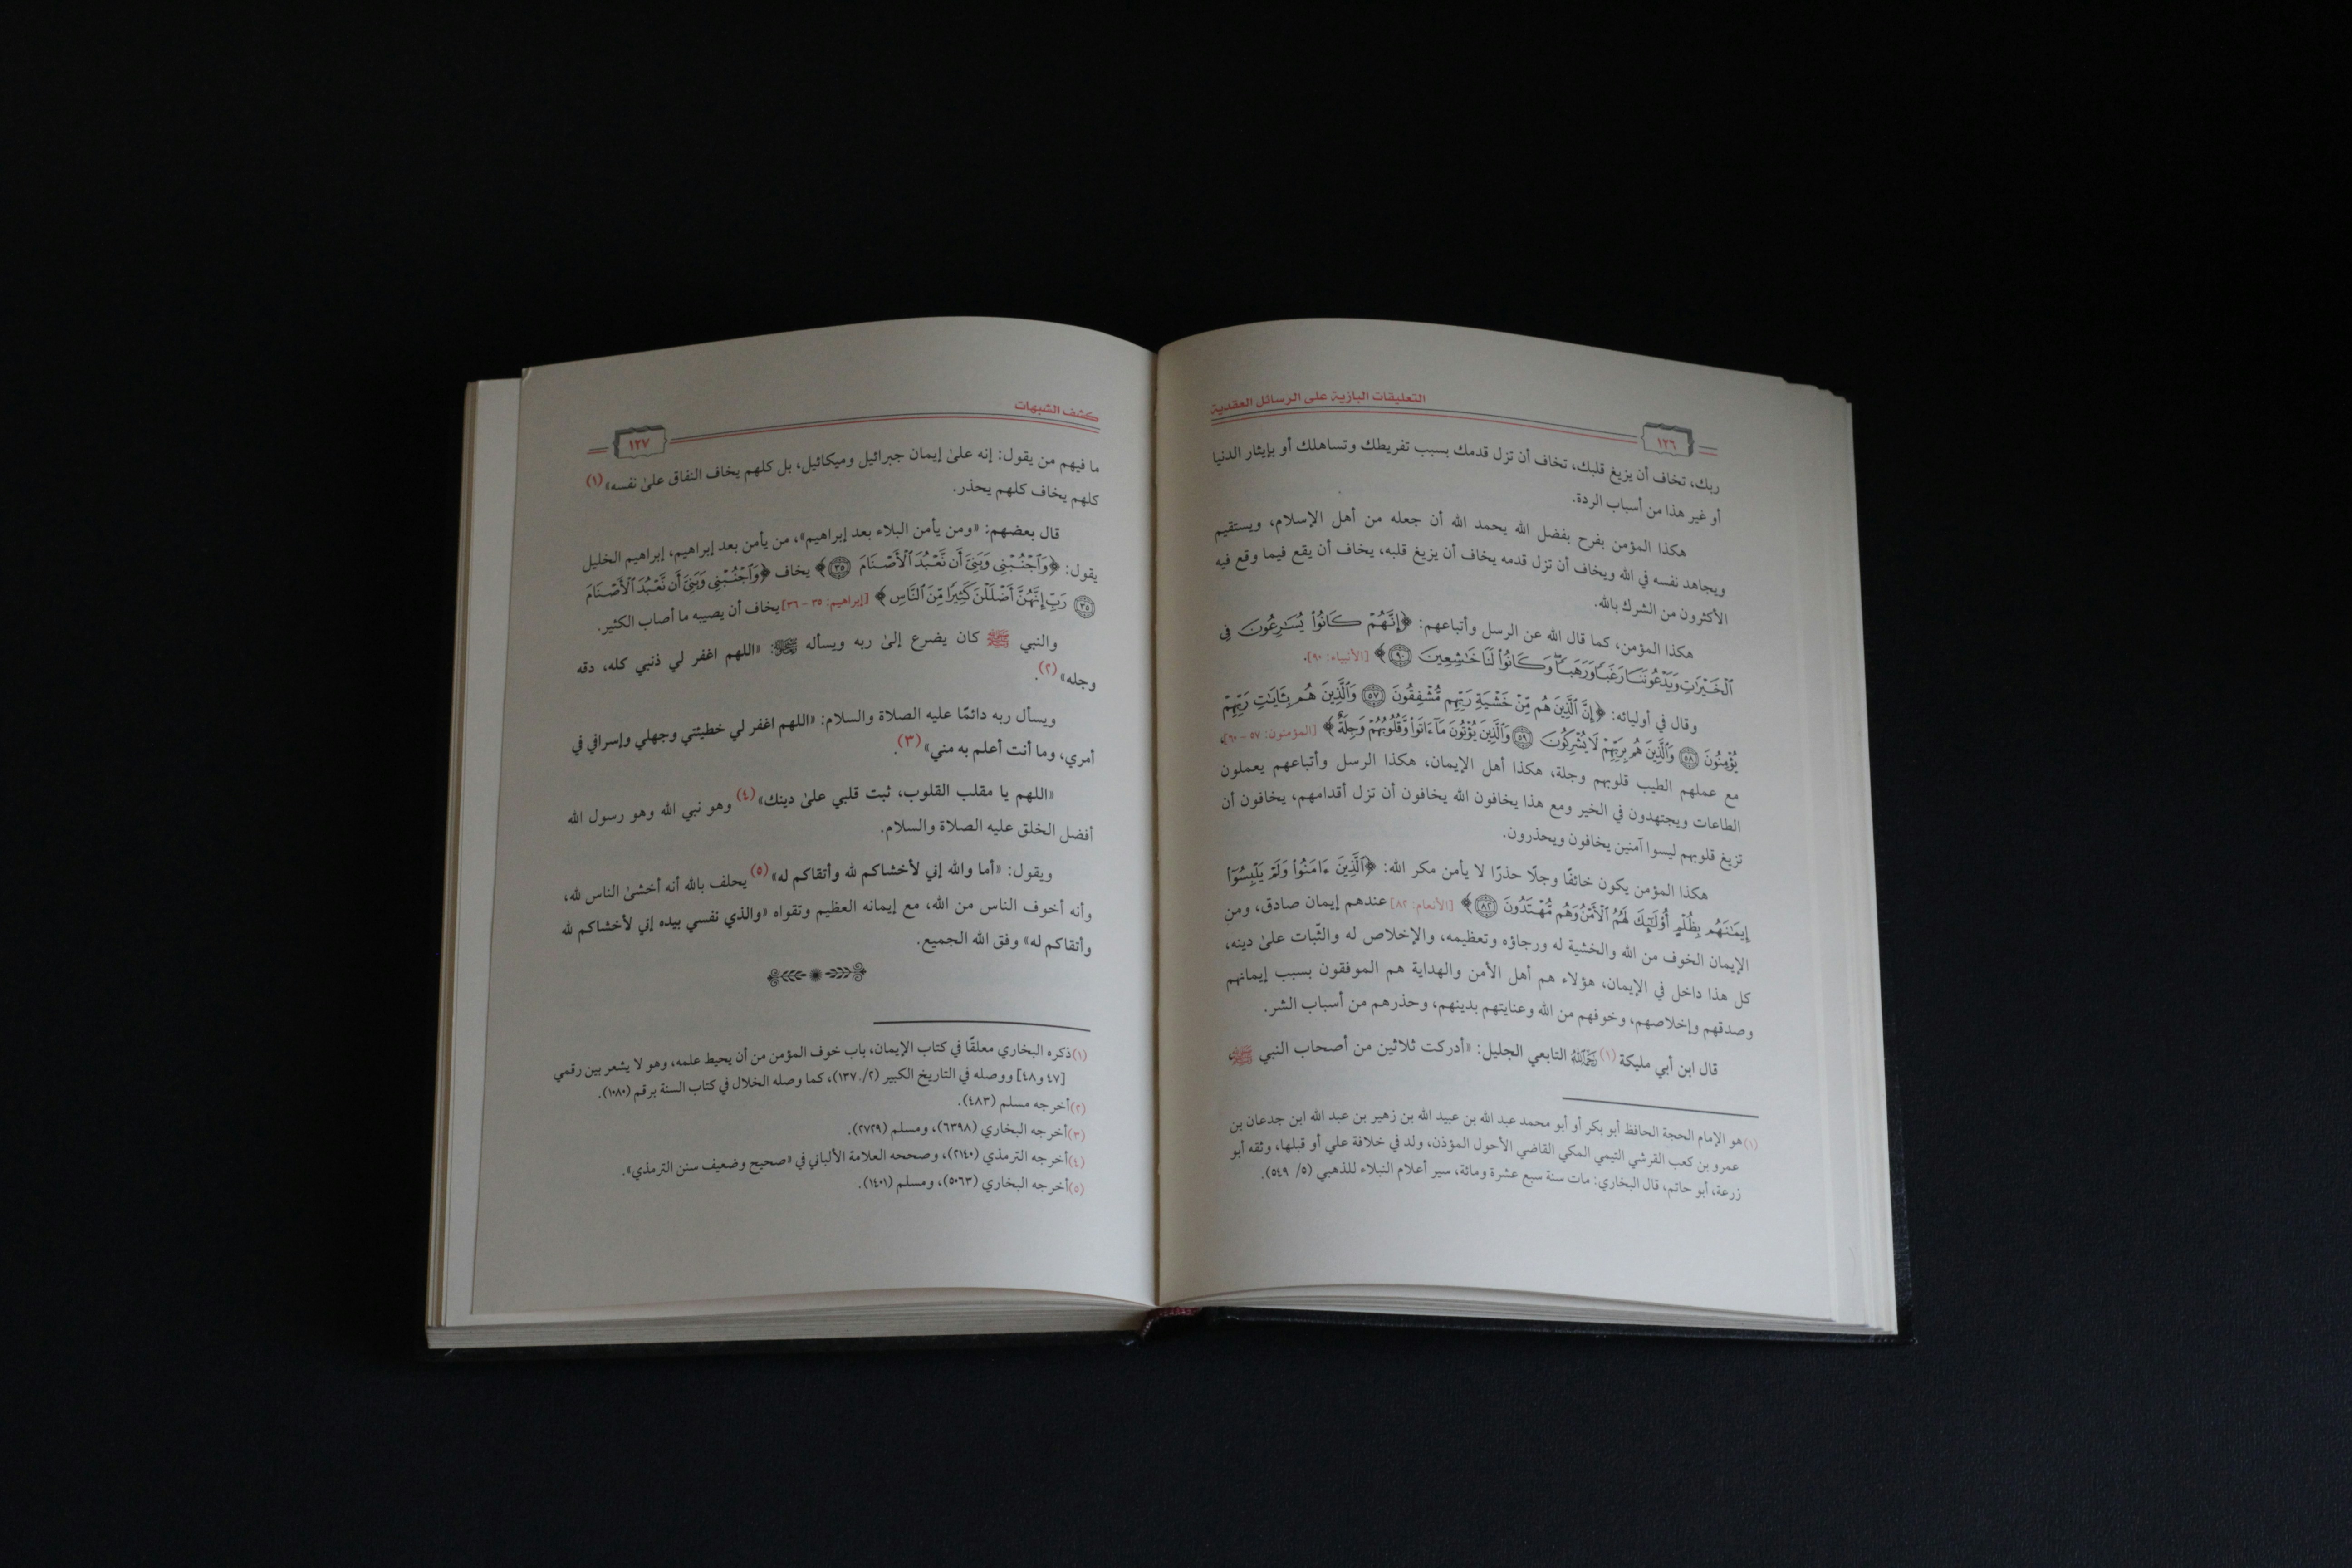 التعليقات البازية على الرسائل العقدية
١٢٦
ربك، تخاف أن يزيغ قلبك، تخاف أن تزل قدمك بسبب تفريطك وتساهلك أو بإيثار الدنيا
أو غير هذا من أسباب الردة.
هكذا المؤمن بفرح بفضل الله يحمد الله أن جعله من أهل الإسلام، ويستقيم
ويجاهد نفسه في الله ويخاف أن تزل قدمه يخاف أن يزيغ قلبه، يخاف أن يقع فيما وقع فيه
الأكثرون من الشرك بالله.
هكذا المؤمن، كما قال الله عن الرسل وأتباعهم: ﴿إِنَّهُمْ كَانُوا۟ يُسَٰرِعُونَ فِى
ٱلْخَيْرَٰتِ وَيَدْعُونَنَا رَغَبًا وَرَهَبًا ۖ وَكَانُوا۟ لَنَا خَٰشِعِينَ ۝٩٠﴾ [الأنبياء: ٩٠].
وقال في أوليائه: ﴿إِنَّ ٱلَّذِينَ هُم مِّنْ خَشْيَةِ رَبِّهِم مُّشْفِقُونَ ۝٥٧ وَٱلَّذِينَ هُم بِـَٔايَٰتِ رَبِّهِمْ
يُؤْمِنُونَ ۝٥٨ وَٱلَّذِينَ هُم بِرَبِّهِمْ لَا يُشْرِكُونَ ۝٥٩ وَٱلَّذِينَ يُؤْتُونَ مَآ ءَاتَوا۟ وَّقُلُوبُهُمْ وَجِلَةٌ﴾ [المؤمنون: ٥٧ - ٦٠]،
مع عملهم الطيب قلوبهم وجلة، هكذا أهل الإيمان، هكذا الرسل وأتباعهم يعملون
الطاعات ويجتهدون في الخير ومع هذا يخافون الله يخافون أن تزل أقدامهم، يخافون أن
تزيغ قلوبهم ليسوا آمنين يخافون ويحذرون.
هكذا المؤمن يكون خائفًا وجلًا حذرًا لا يأمن مكر الله: ﴿ٱلَّذِينَ ءَامَنُوا۟ وَلَمْ يَلْبِسُوٓا۟
إِيمَٰنَهُم بِظُلْمٍ أُو۟لَٰٓئِكَ لَهُمُ ٱلْأَمْنُ وَهُم مُّهْتَدُونَ ۝٨٢﴾ [الأنعام: ٨٢] عندهم إيمان صادق، ومن
الإيمان الخوف من الله والخشية له ورجاؤه وتعظيمه، والإخلاص له والثبات علىٰ دينه،
كل هذا داخل في الإيمان، هؤلاء هم أهل الأمن والهداية هم الموفقون بسبب إيمانهم
وصدقهم وإخلاصهم، وخوفهم من الله وعنايتهم بدينهم، وحذرهم من أسباب الشر.
قال ابن أبي مليكة (١) رحمه الله التابعي الجليل: «أدركت ثلاثين من أصحاب النبي ﷺ،
(١) هو الإمام الحجة الحافظ أبو بكر أو أبو محمد عبد الله بن عبيد الله بن زهير بن عبد الله ابن جدعان بن
عمرو بن كعب القرشي التيمي المكي القاضي الأحول المؤذن، ولد في خلافة علي أو قبلها، وثقه أبو
زرعة، أبو حاتم، قال البخاري: مات سنة سبع عشرة ومائة، سير أعلام النبلاء للذهبي (٥/ ٥٤٩).
كشف الشبهات
١٢٧
ما فيهم من يقول: إنه علىٰ إيمان جبرائيل وميكائيل، بل كلهم يخاف النفاق علىٰ نفسه» (١)
كلهم يخاف كلهم يحذر.
قال بعضهم: «ومن يأمن البلاء بعد إبراهيم»، من يأمن بعد إبراهيم، إبراهيم الخليل
يقول: ﴿وَٱجْنُبْنِى وَبَنِىَّ أَن نَّعْبُدَ ٱلْأَصْنَامَ ۝٣٥﴾ يخاف ﴿وَٱجْنُبْنِى وَبَنِىَّ أَن نَّعْبُدَ ٱلْأَصْنَامَ
۝٣٥ رَبِّ إِنَّهُنَّ أَضْلَلْنَ كَثِيرًا مِّنَ ٱلنَّاسِ﴾ [إبراهيم: ٣٥ - ٣٦] يخاف أن يصيبه ما أصاب الكثير.
والنبي ﷺ كان يضرع إلىٰ ربه ويسأله ﷺ: «اللهم اغفر لي ذنبي كله، دقه
وجله» (٢).
ويسأل ربه دائمًا عليه الصلاة والسلام: «اللهم اغفر لي خطيئتي وجهلي وإسرافي في
أمري، وما أنت أعلم به مني» (٣).
«اللهم يا مقلب القلوب، ثبت قلبي علىٰ دينك» (٤) وهو نبي الله وهو رسول الله
أفضل الخلق عليه الصلاة والسلام.
ويقول: «أما والله إني لأخشاكم لله وأتقاكم له» (٥) يحلف بالله أنه أخشىٰ الناس لله،
وأنه أخوف الناس من الله، مع إيمانه العظيم وتقواه «والذي نفسي بيده إني لأخشاكم لله
وأتقاكم له» وفق الله الجميع.
(١) ذكره البخاري معلقًا في كتاب الإيمان، باب خوف المؤمن من أن يحيط علمه، وهو لا يشعر بين رقمي
[٤٧ و٤٨] ووصله في التاريخ الكبير (٢/ ١٣٧)، كما وصله الخلال في كتاب السنة برقم (١٠٨٠).
(٢) أخرجه مسلم (٤٨٣).
(٣) أخرجه البخاري (٦٣٩٨)، ومسلم (٢٧٢٩).
(٤) أخرجه الترمذي (٢١٤٠)، وصححه العلامة الألباني في «صحيح وضعيف سنن الترمذي».
(٥) أخرجه البخاري (٥٠٦٣)، ومسلم (١٤٠١).